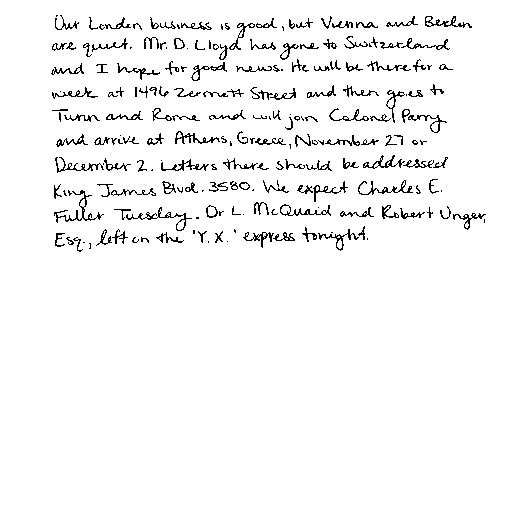 Our London business is good, but Vienna and Berlin
are quiet. Mr. D. Lloyd has gone to Switzerland
and I hope for good news. He will be there for a
week at 1496 Zermott Street and then goes to
Turin and Rome and will join Colonel Parry
and arrive at Athens, Greece, November 27 or
December 2. Letters there should be addressed
King James Blvd. 3580. We expect Charles E.
Fuller Tuesday. Dr L. McQuaid and Robert Unger,
Esq., left on the 'Y.X.' express tonight.